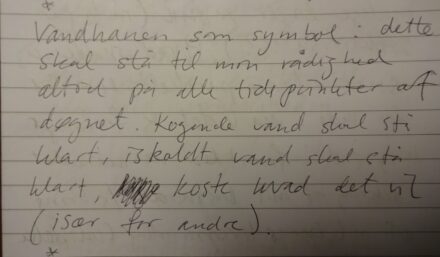 *
Vandhanen som symbol: dette
skal stå til min rådighed
altid på alle tidspunkter af
døgnet. Kogende vand skal stå
klart, iskoldt vand skal stå
klart, koste hvad det vil
(især for andre).
*